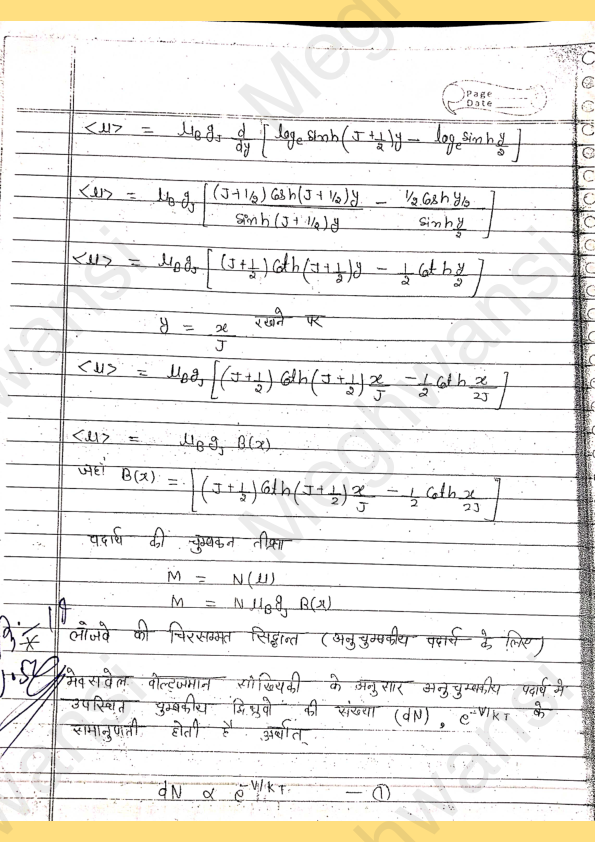 Page
Date
<μ> = μ_B g_J d/dy [log_e sinh(J+1/2)y − log_e sinh y/2]
<μ> = μ_B g_J [(J+1/2) Cosh(J+1/2)y / sinh(J+1/2)y − 1/2 Cosh y/2 / sinh y/2]
<μ> = μ_B g_J [(J+1/2) Coth(J+1/2)y − 1/2 Coth y/2]
y = x/J रखने पर
<μ> = μ_B g_J [(J+1/2) Coth(J+1/2)x/J − 1/2 Coth x/2J]
<μ> = μ_B g_J B(x)
जहां B(x) = [(J+1/2) Coth(J+1/2)x/J − 1/2 Coth x/2J]
पदार्थ की चुम्बकन तीव्रता
M = N(μ)
M = N μ_B g_J B(x)
लांजवे की चिरसम्मत सिद्धान्त (अनुचुम्बकीय पदार्थ के लिए)
मेक्सवेल वोल्टजमान सांख्यिकी के अनुसार अनुचुम्बकीय पदार्थ में
उपस्थित चुम्बकीय द्विध्रुवो की संख्या (dN), e^-V/KT के
समानुपाती होती है अर्थात्
dN ∝ e^-V/KT — ①
Meghwansi
Meghwansi
Meghwansi